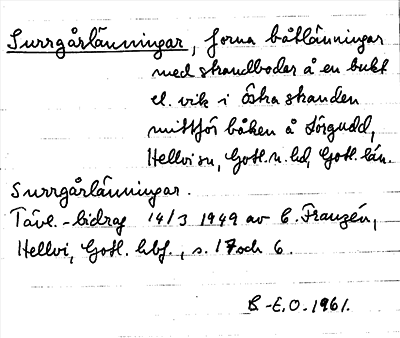 Surrgårlänningar, forna båtlänningar
med strandbodar å en bukt
el. vik i östra stranden
mittför båken å Lörgudd,
Hellvi sn, Gotl. n. hd, Gotl. län.
Surrgårlänningar.
Tävl.-bidrag 14/3 1949 av C. Franzén,
Hellvi, Gotl. hbf., s. 1 7 och 6.
B.-E.O. 1961.